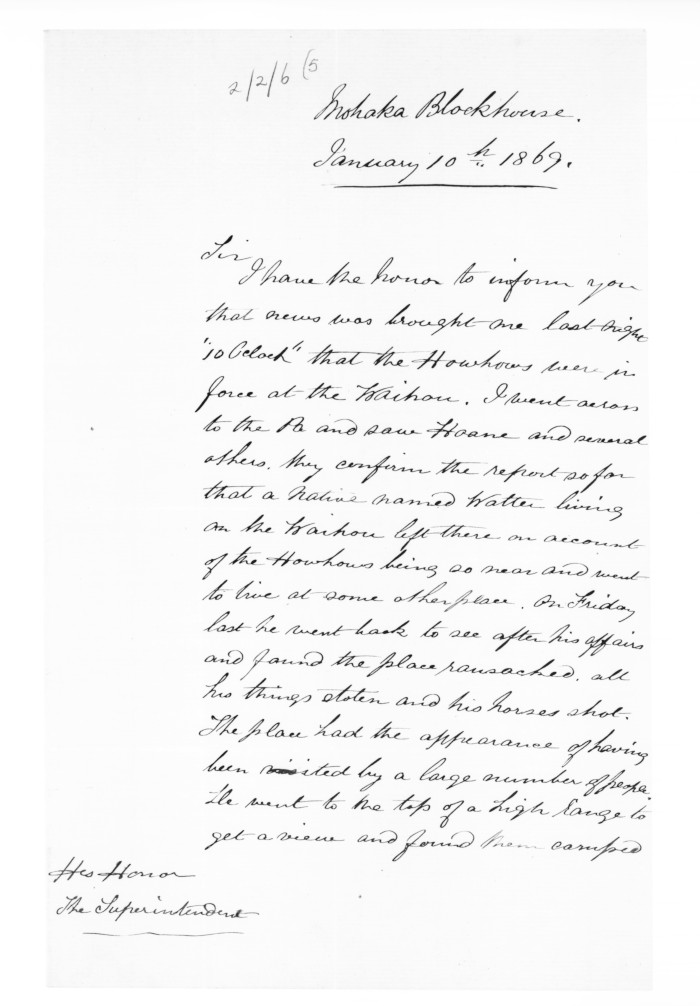 2/2/6 (5
Mohaka Blockhouse.
January 10th 1869.
Sir
I have the honor to inform you
that news was brought me last night
"10 OClock" that the Howhows were in
force at the Waihou. I went across
to the Pa and saw Hoane and several
others. they confirm the report so far
that a Native named Watter living
on the Waihou left there on account
of the Howhows being so near and went
to live at some other place. On Friday
last he went back to see after his affairs
and found the place ransacked. all
his things stolen and his horses shot.
The place had the appearance of having
been visited by a large number of people.
He went to the top of a high range to
get a view and found them camped
His Honor
The Superintendent